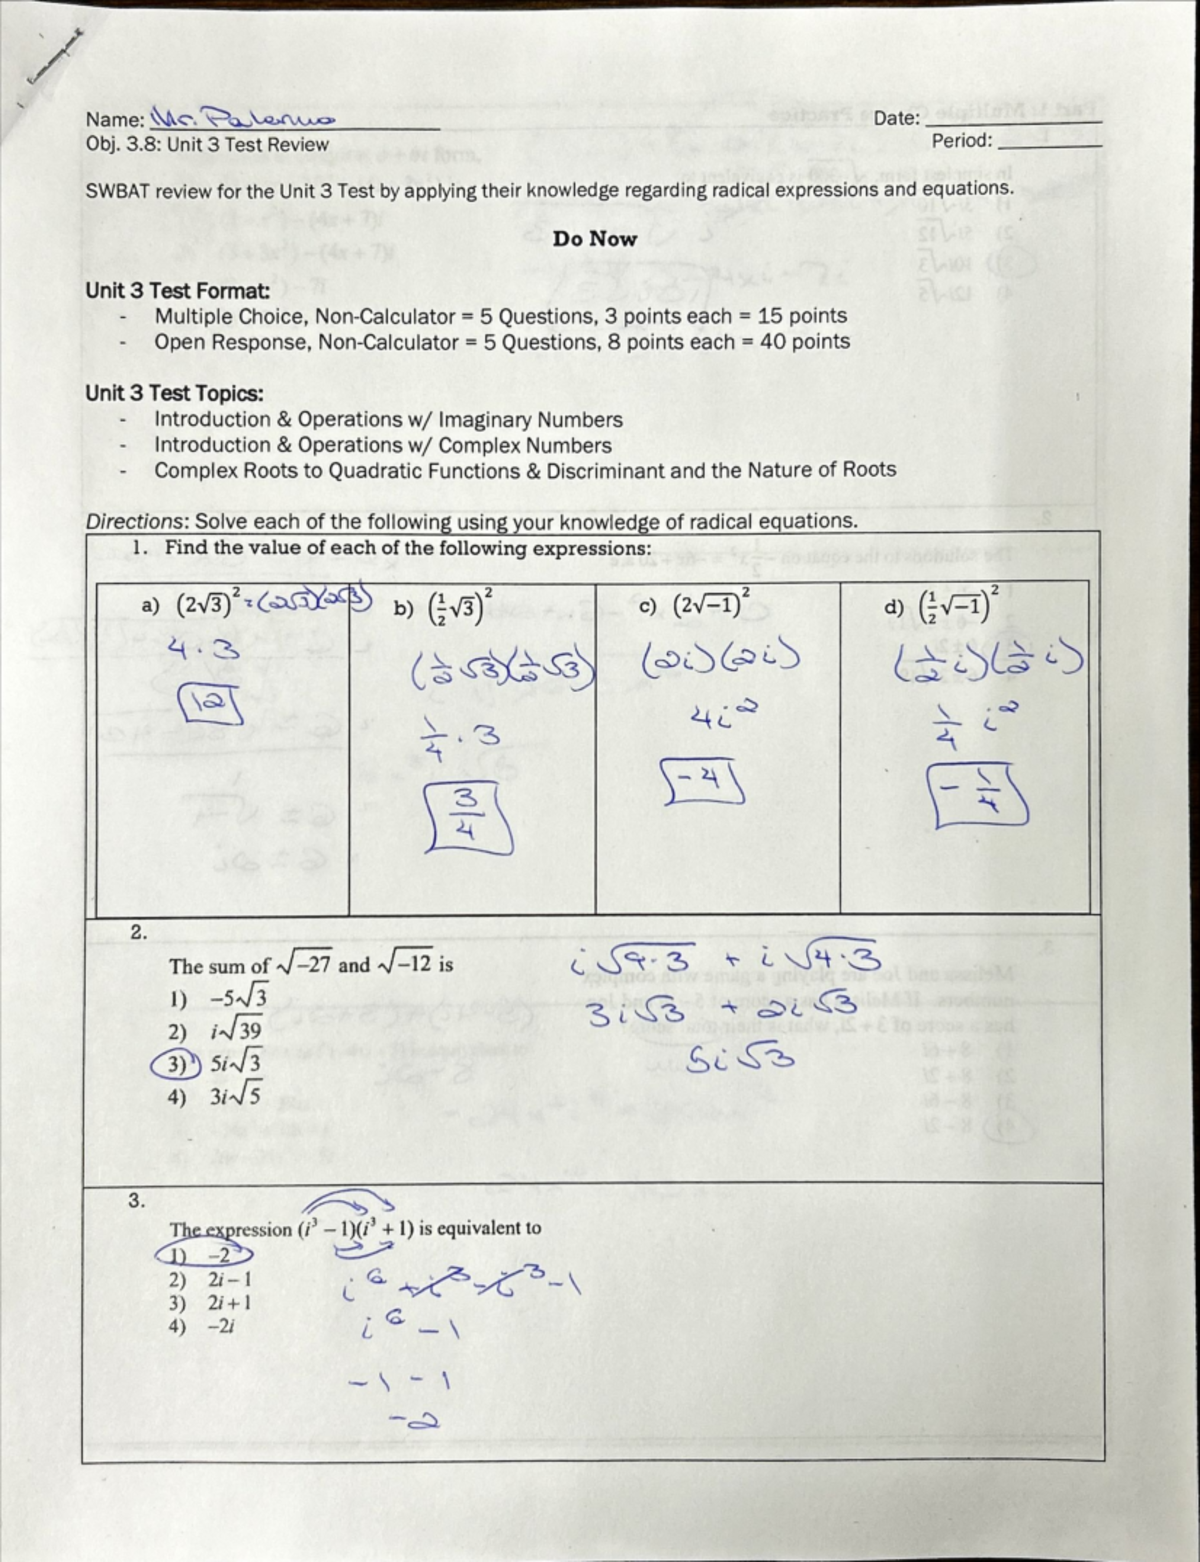 Name: Mr. Palermo
Date:
Obj. 3.8: Unit 3 Test Review
Period:
SWBAT review for the Unit 3 Test by applying their knowledge regarding radical expressions and equations.
Do Now
Unit 3 Test Format:
- Multiple Choice, Non-Calculator = 5 Questions, 3 points each = 15 points
- Open Response, Non-Calculator = 5 Questions, 8 points each = 40 points
Unit 3 Test Topics:
- Introduction & Operations w/ Imaginary Numbers
- Introduction & Operations w/ Complex Numbers
- Complex Roots to Quadratic Functions & Discriminant and the Nature of Roots
Directions: Solve each of the following using your knowledge of radical equations.
1. Find the value of each of the following expressions:
a) (2√3)² = (2√3)(2√3)
4 · 3
12
b) (½√3)²
(½√3)(½√3)
¼ · 3
3/4
c) (2√−1)²
(2i)(2i)
4i²
-4
d) (½√−1)²
(½i)(½i)
¼ i²
-¼
2.
The sum of √−27 and √−12 is
1) −5√3
2) i√39
3) 5i√3
4) 3i√5
i√9·3 + i√4·3
3i√3 + 2i√3
5i√3
3.
The expression (i³ − 1)(i³ + 1) is equivalent to
1) −2
2) 2i − 1
3) 2i + 1
4) −2i
i⁶ + i³ - i³ - 1
i⁶ - 1
-1 - 1
-2